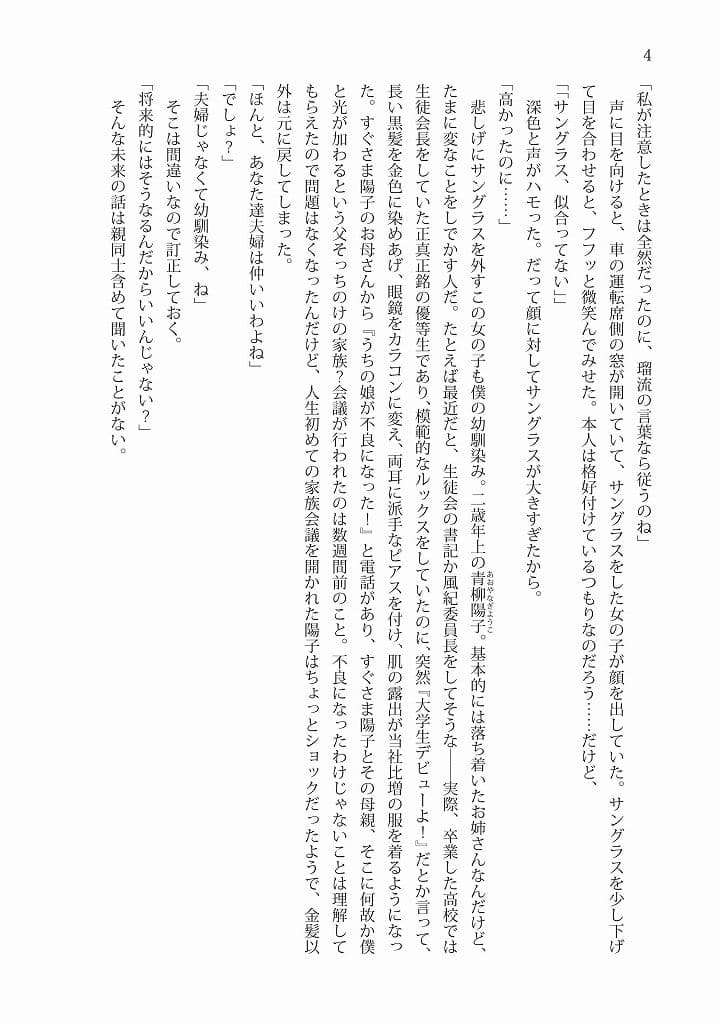 4
「私が注意したときは全然だったのに、瑠流の言葉なら従うのね」
　声に目を向けると、車の運転席側の窓が開いていて、サングラスをした女の子が顔を出していた。サングラスを少し下げ
て目を合わせると、フフッと微笑んでみせた。本人は格好付けているつもりなのだろう……だけど、
「「サングラス、似合ってない」」
　深色と声がハモった。だって顔に対してサングラスが大きすぎたから。
「高かったのに……」
　悲しげにサングラスを外すこの女の子も僕の幼馴染み。二歳年上の青柳陽子。基本的には落ち着いたお姉さんなんだけど、
あおやなぎようこ
たまに変なことをしでかす人だ。たとえば最近だと、生徒会の書記か風紀委員長をしてそうな――実際、卒業した高校では
生徒会長をしていた正真正銘の優等生であり、模範的なルックスをしていたのに、突然『大学生デビューよ！』だとか言って、
長い黒髪を金色に染めあげ、眼鏡をカラコンに変え、両耳に派手なピアスを付け、肌の露出が当社比増の服を着るようになっ
た。すぐさま陽子のお母さんから『うちの娘が不良になった！』と電話があり、すぐさま陽子とその母親、そこに何故か僕
と光が加わるという父そっちのけの家族？会議が行われたのは数週間前のこと。不良になったわけじゃないことは理解して
もらえたので問題はなくなったんだけど、人生初めての家族会議を開かれた陽子はちょっとショックだったようで、金髪以
外は元に戻してしまった。
「ほんと、あなた達夫婦は仲いいわよね」
「でしょ？」
「夫婦じゃなくて幼馴染み、ね」
　そこは間違いなので訂正しておく。
「将来的にはそうなるんだからいいんじゃない？」
　そんな未来の話は親同士含めて聞いたことがない。